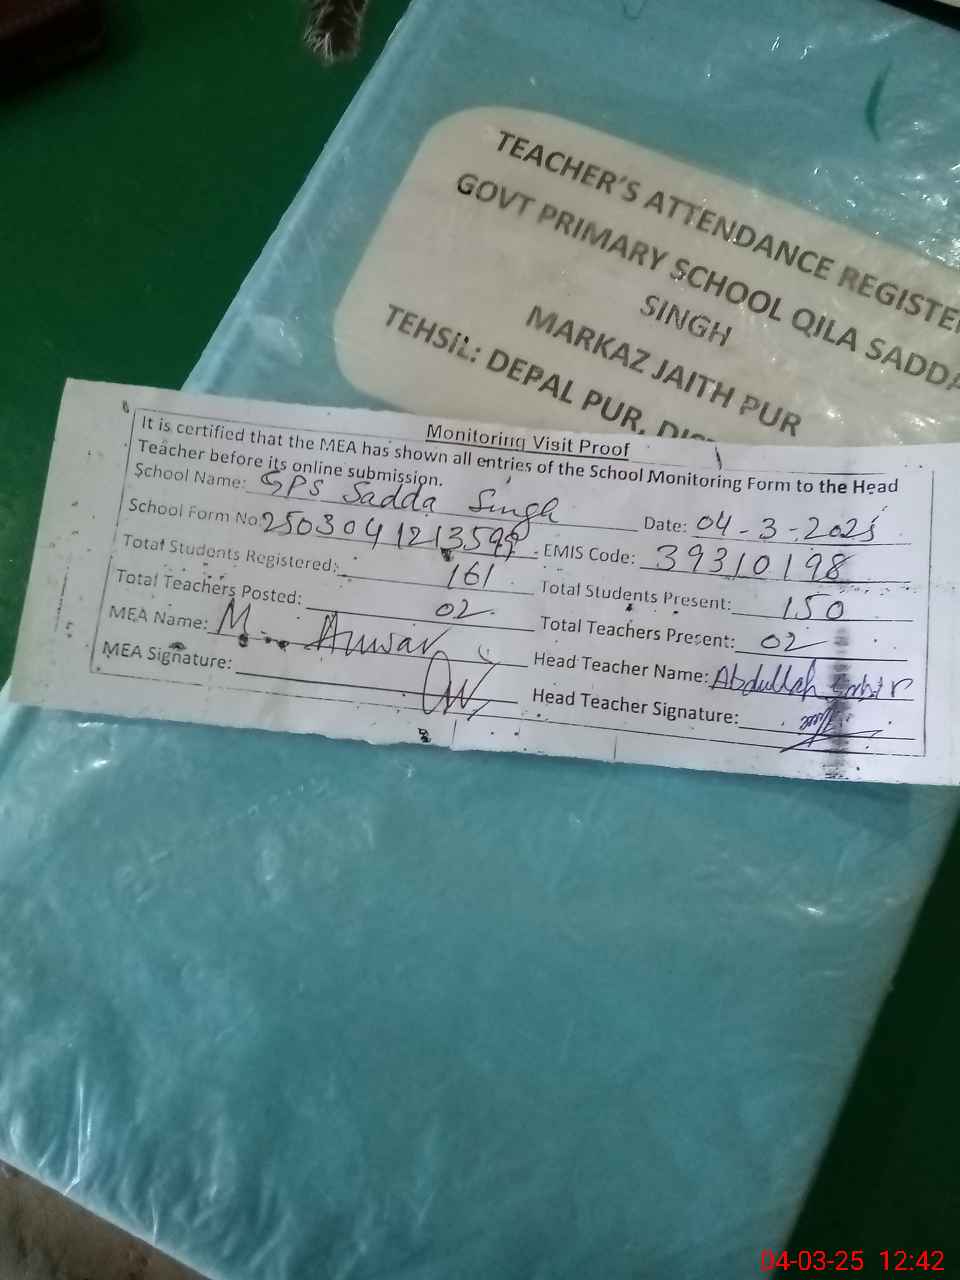 TEACHER'S ATTENDANCE REGISTE
GOVT PRIMARY SCHOOL QILA SADDA
SINGH
MARKAZ JAITH PUR
TEHSIL: DEPAL PUR, DIS
Monitoring Visit Proof
It is certified that the MEA has shown all entries of the School Monitoring Form to the Head
Teacher before its online submission.
School Name: GPS Sadda Singh Date: 04-3-2025
School Form No: EMIS Code: 39310198
Total Students Registered: 161 Total Students Present: 150
Total Teachers Posted: 02 Total Teachers Present: 02
MEA Name: M. Anwar Head Teacher Name: Abdullah
MEA Signature: Head Teacher Signature:
04-03-25 12:42